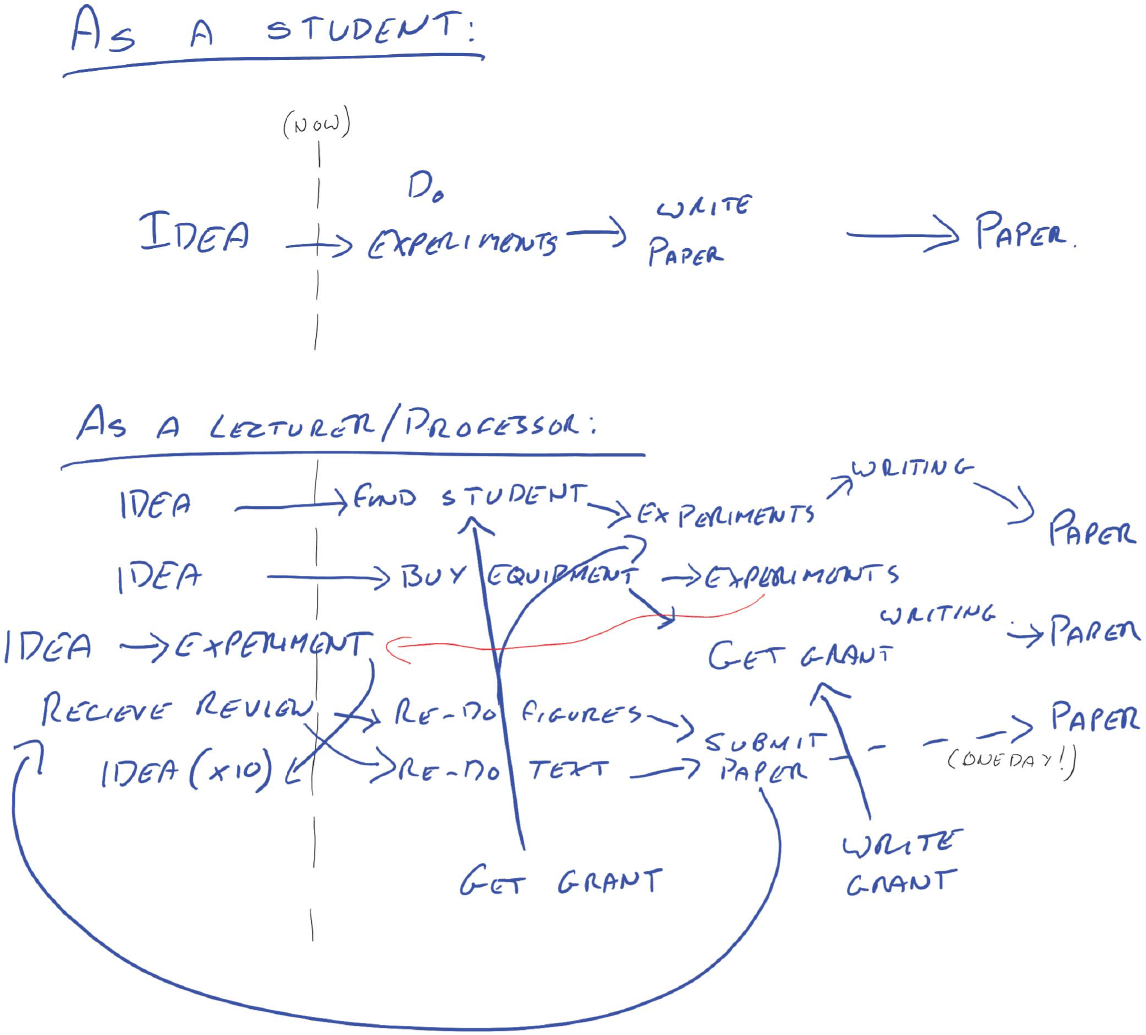 As A STUDENT:
(NOW)
IDEA
Do
EXPERIMENTS
WRITE
PAPER
PAPER.
As A LECTURER/PROFESSOR:
IDEA
FIND STUDENT
EXPERIMENTS
WRITING
PAPER
IDEA
BUY EQUIPMENT
EXPERIMENTS
IDEA
EXPERIMENT
GET GRANT
WRITING
PAPER
RECIEVE REVIEW
RE-DO FIGURES
SUBMIT
PAPER
PAPER
(ONE DAY!)
IDEA (x10)
RE-DO TEXT
GET GRANT
WRITE
GRANT